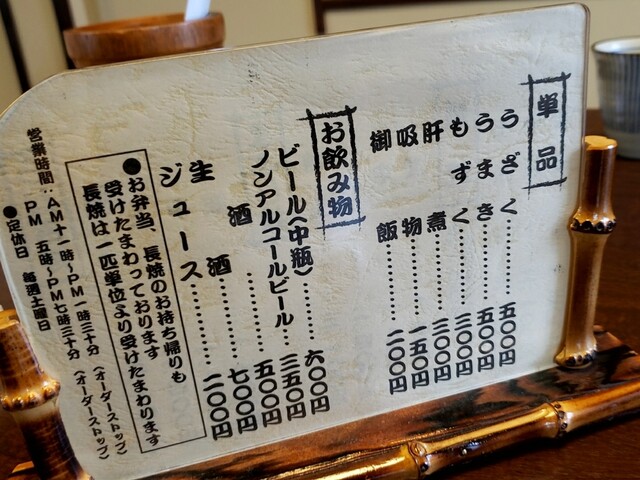 単品
うざく……五〇〇円
うまき……五〇〇円
もずく……三〇〇円
肝煮……三〇〇円
吸物……一五〇円
御飯……二〇〇円
お飲み物
ビール(中瓶)……六〇〇円
ノンアルコールビール…三五〇円
酒……五〇〇円
生酒……七〇〇円
ジュース……二〇〇円
●お弁当、長焼のお持ち帰りも
受けたまわっております
長焼は一匹単位より受けたまわります
営業時間：AM十一時〜PM一時三十分（オーダーストップ）
PM 五時〜PM七時三十分（オーダーストップ）
●定休日 毎週土曜日